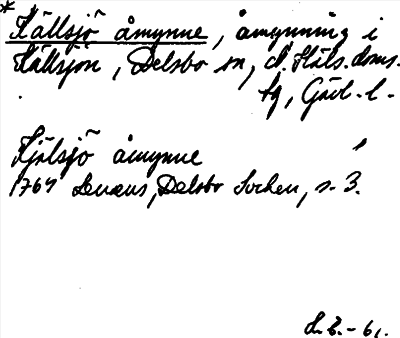 * Källsjö åmynne, åmynning i
Källsjön, Delsbo sn, d. Häls. doms.
tg, Gävl. l.
Kjälsjö åmynne
1764 Lenæus, Delsbo Sochen, s. 3.